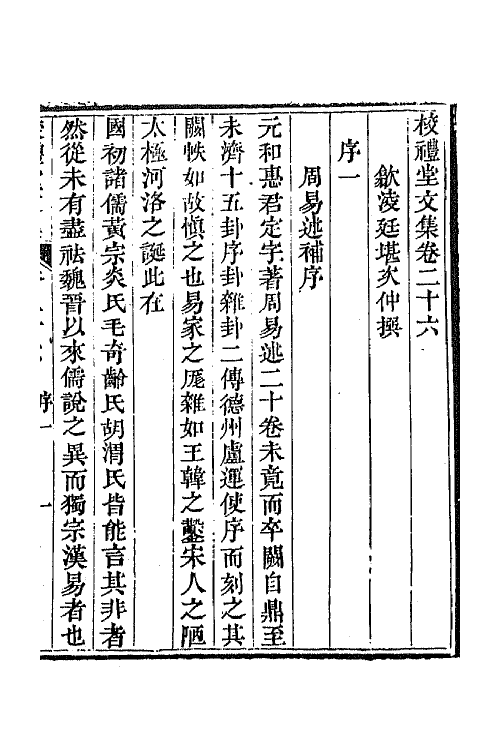 校禮堂文集卷二十六
歙淩廷堪次仲撰
序一
周易述補序
元和惠君定字著周易述二十卷未竟而卒闕自鼎至
未濟十五卦序卦雜卦二傳德州盧運使序而刻之其
闕帙如故愼之也易家之厖雜如王韓之鑿宋人之陋
太極河洛之誕此在
國初諸儒黃宗炎氏毛奇齡氏胡渭氏皆能言其非者
然從未有盡祛魏晋以來儒說之異而獨宗漢易者也
序一
一